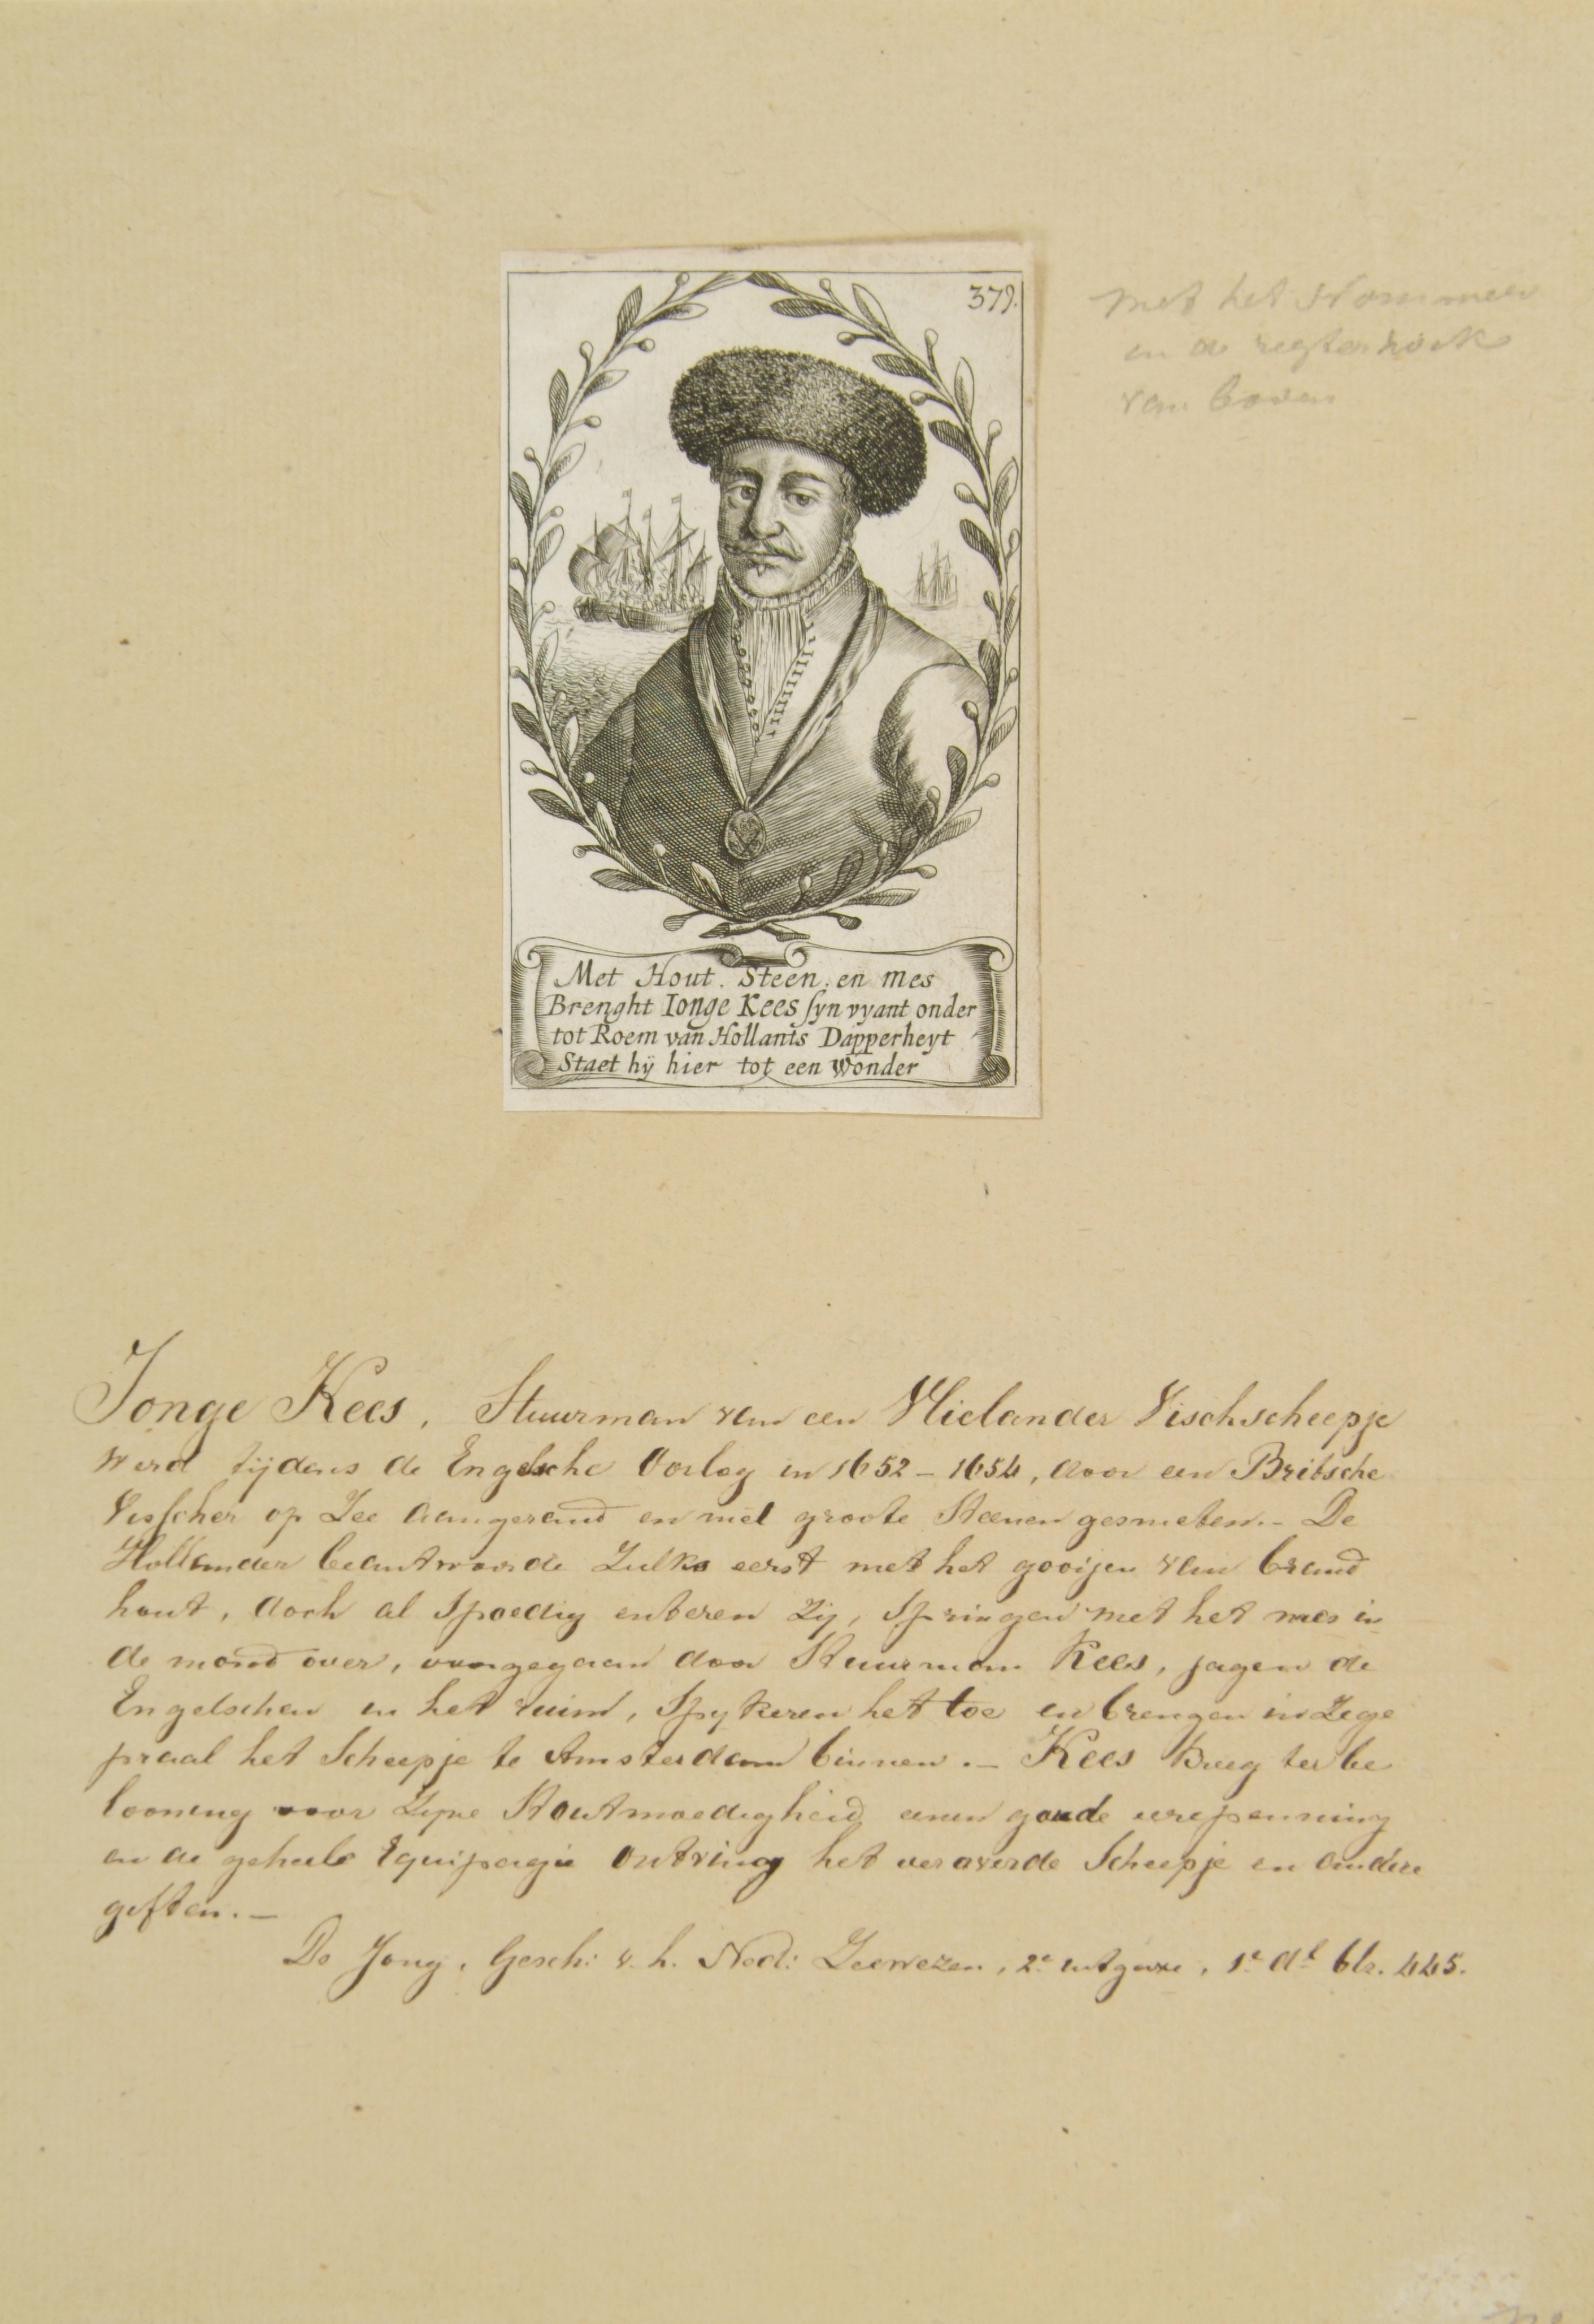 379.
met het Nommer
in de regterhoek
van boven
Met Hout. Steen. en mes
Brenght Ionge Kees ſyn vyant onder
tot Roem van Hollants Dapperheyt
Staet hÿ hier tot een Wonder
Jonge Kees, Stuurman van een Vlielander Vischscheepje
werd tijdens de Engelsche Oorlog in 1652 - 1654, door een Britsche
Visscher op Zee aangerand en met groote Steenen gesmeten. - De
Hollander beantwoorde Zulks eerst met het gooijen van brand
hout, doch al Spoedig enteren Zij, Springen met het mes in
de mond over, voorgegaan door Stuurman Kees, jagen de
Engelschen in het ruim, Spijkeren het toe en brengen in Zege
praal het Scheepje te Amsterdam binnen. - Kees kreeg ter be
looning voor Zijne Stoutmoedigheid eenen goude eerepenning
en de geheele Equipagie ontving het veroverde Scheepje en andere
giften. -
De Jong, Gesch: v. h. Ned: Zeewezen, 2e uitgave, 1e dl blz. 445.